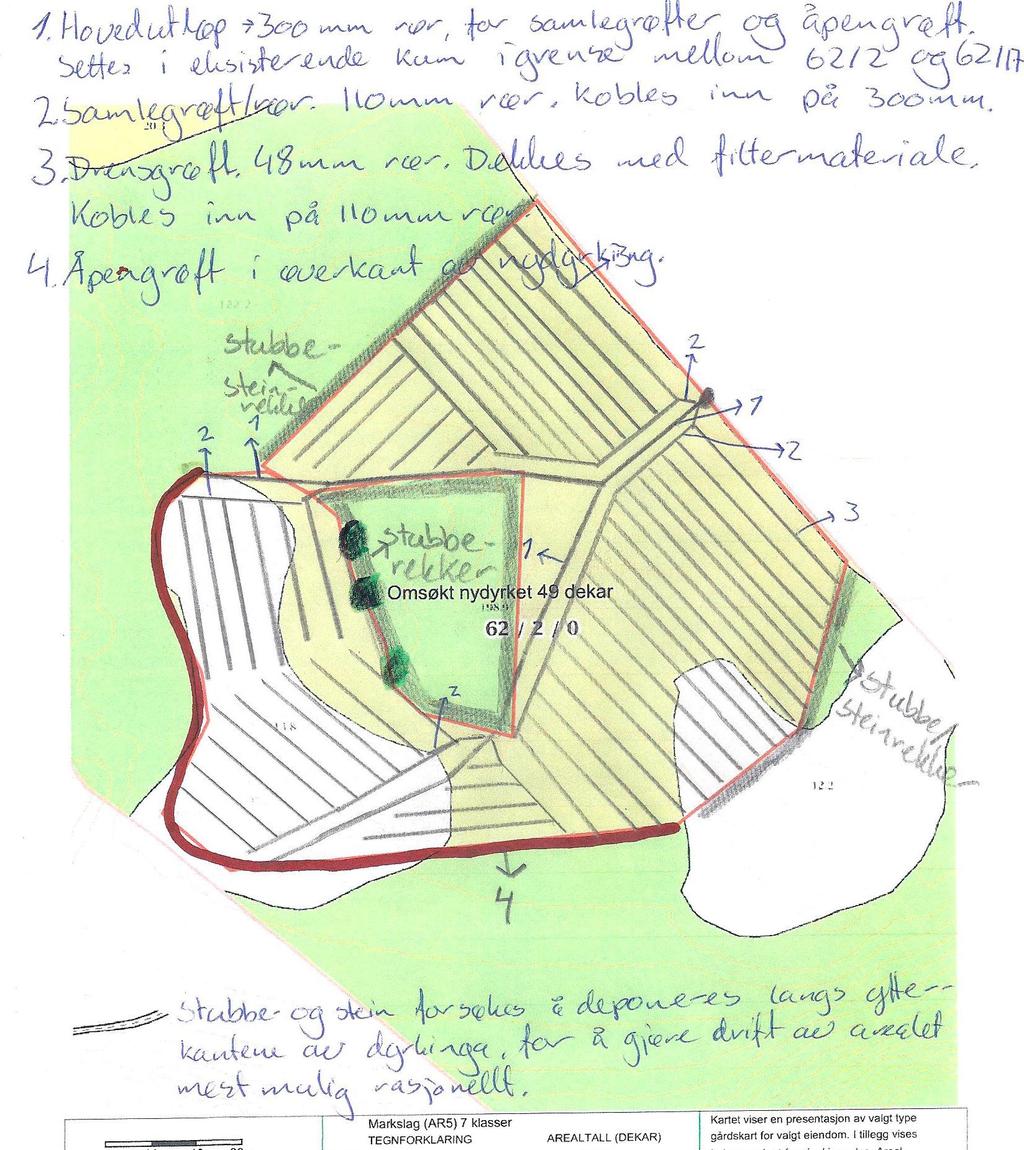 1. Hovedutløp → 300 mm rør, for samlegrøfter og åpengrøft.
Settes i eksisterende kum i grense mellom 62/2 og 62/17
2. Samlegrøft/rør. 110mm rør. Kobles inn på 300mm.
3. Drensgrøft. 48mm rør. Dekkes med filtermateriale.
Kobles inn på 110mm rør
4. Åpengrøft i overkant av nydyrking.
3
122.2
stubbe-
stein-
rekke
2
1
2
1
2
3
stubbe-
rekker
1
Omsøkt nydyrket 49 dekar
198.9
62 / 2 / 0
2
stubbe/
steinrekke
11.8
12.2
4
Stubbe- og stein forsøkes å deponeres langs ytter-
kantene av dyrkinga, for å gjøre drift av arealet
mest mulig rasjonellt.
Markslag (AR5) 7 klasser
TEGNFORKLARING
AREALTALL (DEKAR)
Kartet viser en presentasjon av valgt type
gårdskart for valgt eiendom. I tillegg vises